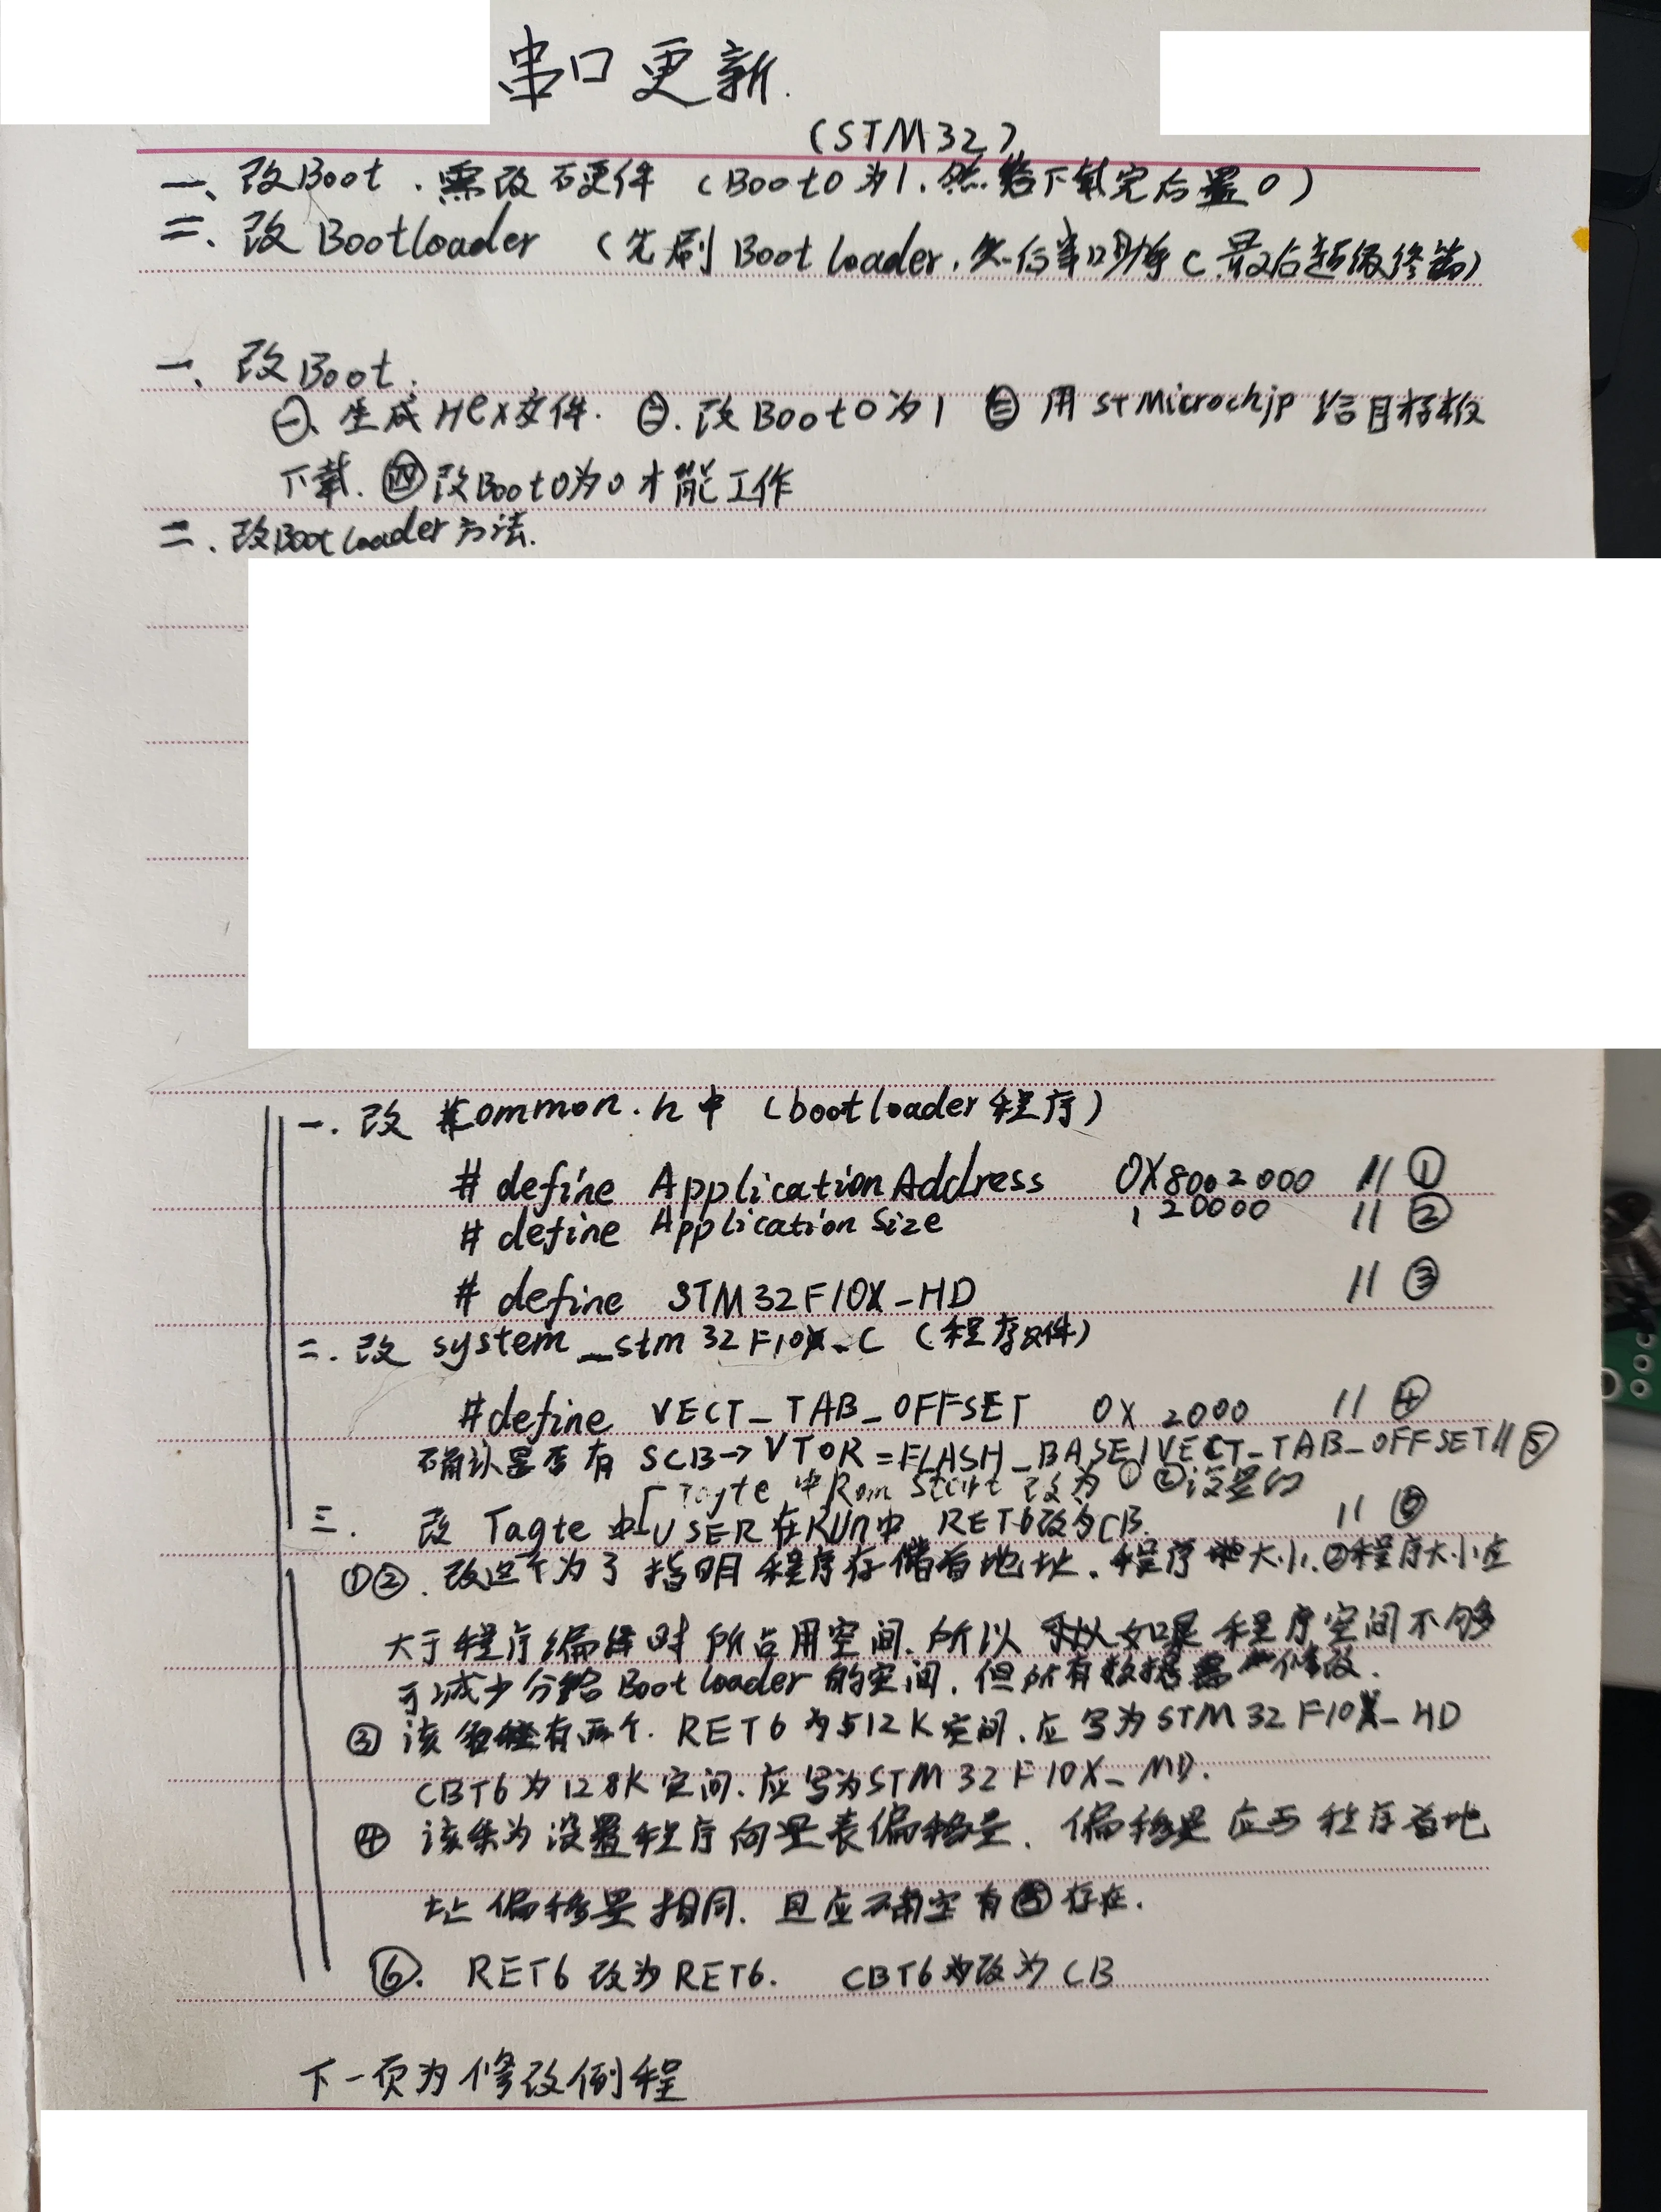 串口更新.
(STM32)
一、改Boot .需改硬件 (Boot0为1.然后下载完后置0)
二、改Bootloader (先刷Bootloader,然后串口助手C最后超级终端)
一、改Boot.
㊀、生成Hex文件. ㊁.改Boot0为1 ㊂用STMicrochip给目标板
下载. ㊃改Boot0为0才能工作
二、改Bootloader方法.
一.改 common.h中 (bootloader程序)
# define ApplicationAddress 0X8002000 // ①
# define Application Size 120000 // ②
# define STM32F10X-HD // ③
二.改 system_stm32F10X.C (程序文件)
#define VECT_TAB_OFFSET 0X 2000 // ④
确认是否有 SCB→VTOR=FLASH_BASE|VECT_TAB_OFFSET//⑤
Tagte 中Rom Start 改为①②设置的
三. 改 Tagte 中USER在RUn中 RET6改为CB. // ⑥
①②.改这个为了指明程序存储首地址.程序大小.②程序大小应
大于程序编译时所占用空间.所以如果程序空间不够
可减少分给Bootloader的空间,但所有数据需修改.
③ 该有两个. RET6为512K空间.应写为STM32F10X_HD
CBT6为128K空间.应写为STM32F10X_MD.
④ 该条为设置程序向量表偏移量. 偏移量应与程序首地
址偏移量相同. 且应确定有⑤存在.
⑥. RET6改为RET6. CBT6改为CB
下一页为修改例程